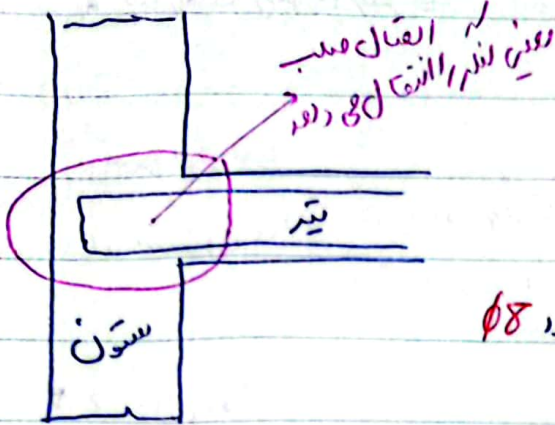 اتصال صلب
یعنی لنگر را انتقال می دهد
تیر
ستون
φ8